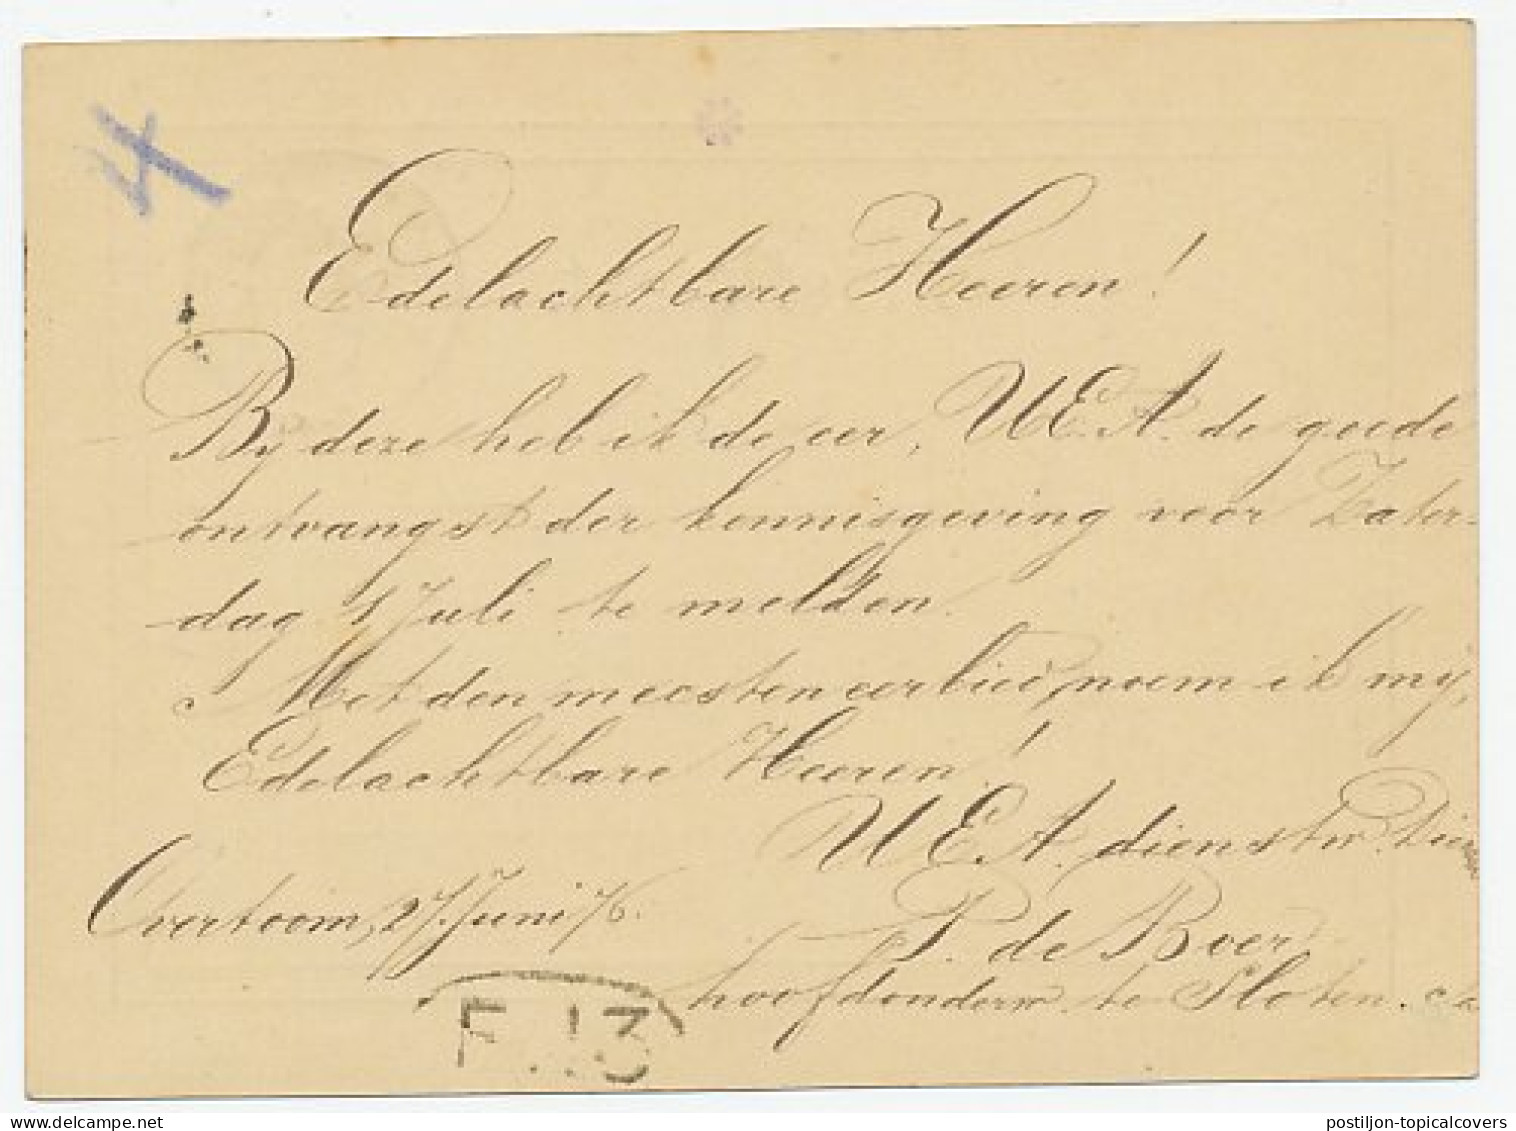 4
Edelachtbare Heeren!
Bij deze heb ik de eer, U.E.A. de goede
ontvangst der kennisgeving voor Zater-
dag 1 Juli te melden.
Met den meesten eerbied, noem ik mij,
Edelachtbare Heeren!
U.E.A. dienstw.
Overtoom, 27 Juni 76.
P. de Boer
hoofdonderw. te Sloten. c.a.
F. 13
postiljon-topicalcovers